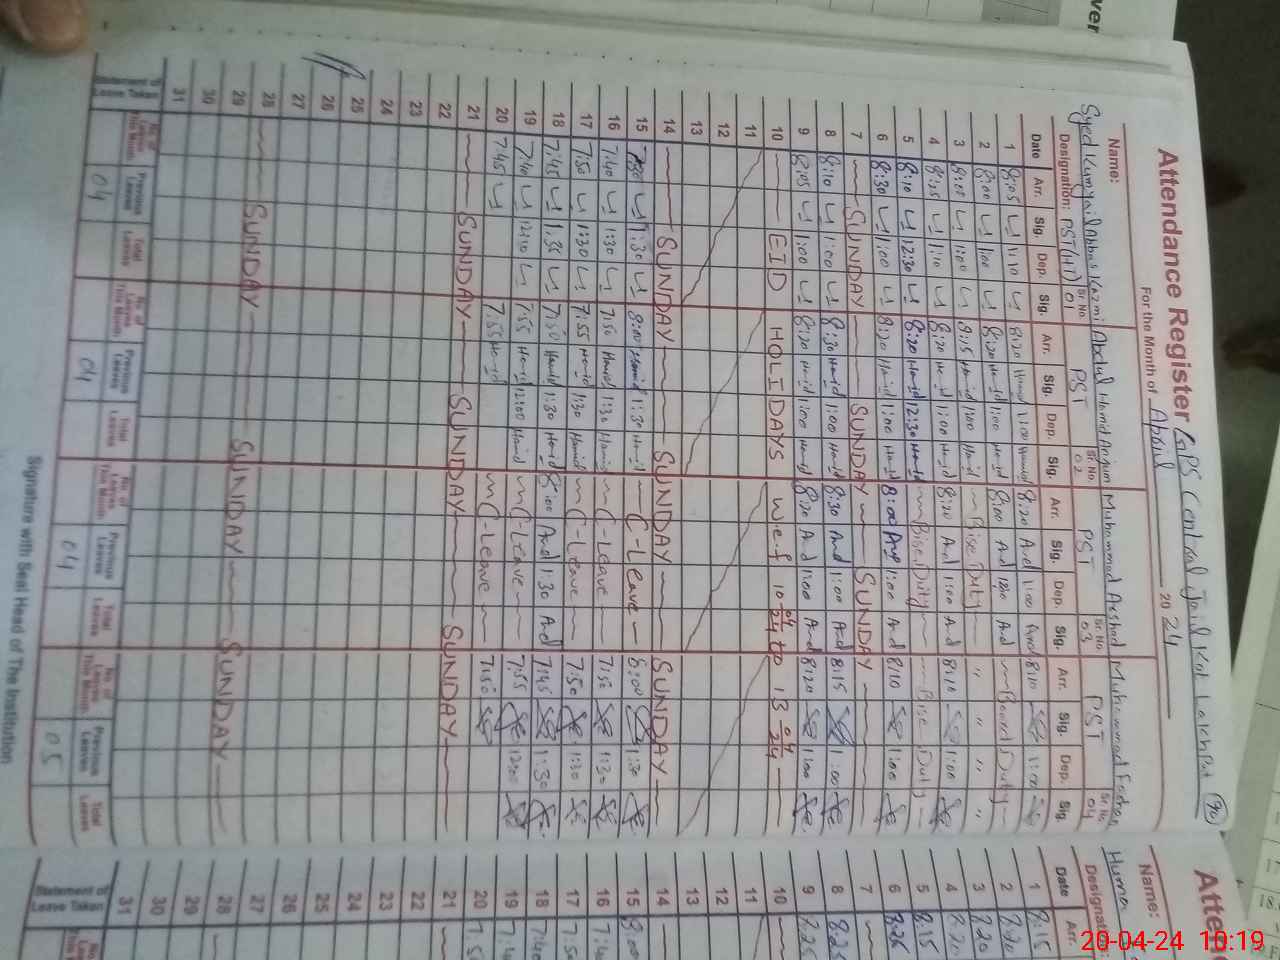 Attendance Register GPS Central Jail Kot Lakhpat
For the Month of April 2024
Name: Syed Kumail Abbas Kazmi Abdul Hamid Anjum Muhammad Arshad Muhammad Farhan
Designation: PST (HT) Sr. No. 01 PST Sr. No. 02 PST Sr. No. 03 PST Sr. No. 04
Date Arr. Sig. Dep. Sig. Arr. Sig. Dep. Sig. Arr. Sig. Dep. Sig. Arr. Sig. Dep. Sig.
1 8:05 1:10 8:20 Hamid 1:00 Hamid 8:20 1:00 8:10 1:00
2 8:00 1:00 8:20 Hamid 1:00 Hamid 8:00 Board Duty
3 8:05 1:00 8:15 Hamid 1:00 Hamid Bise Duty " " "
4 1:10 8:20 Hamid 1:00 Hamid 8:20 1:00 8:10 1:00
5 8:10 12:30 8:20 Hamid 12:30 Hamid Bise Duty Bise Duty
6 8:30 1:00 8:20 Hamid 1:00 Hamid 8:00 1:00 8:10 1:00
7 SUNDAY SUNDAY SUNDAY
8 8:10 1:00 8:30 Hamid 1:00 Hamid 8:30 1:00 8:15 1:00
9 8:05 1:00 8:20 Hamid 1:00 Hamid 8:20 1:00 8:20 1:00
10 EID HOLIDAYS w.e.f 10-04-24 to 13-04-24
11
12
13
14 SUNDAY SUNDAY SUNDAY
15 1:30 8:00 Hamid 1:30 Hamid C-Leave 8:00 1:30
16 7:40 1:30 7:50 Hamid 1:30 Hamid C-Leave 7:50 1:30
17 7:50 1:30 7:55 Hamid 1:30 Hamid C-Leave 7:50 1:30
18 7:45 1:35 7:50 Hamid 1:30 Hamid 8:00 1:30 7:45 1:30
19 7:40 7:55 Hamid 12:00 Hamid C-Leave 7:55 12:00
20 7:45 7:55 Hamid C-Leave 7:50
21 SUNDAY SUNDAY SUNDAY
22
23
24
25
26
27
28 SUNDAY SUNDAY SUNDAY
29
30
31
Statement of Leave Taken No. of Leaves This Month Previous Leaves Total Leaves No. of Leaves This Month Previous Leaves Total Leaves No. of Leaves This Month Previous Leaves Total Leaves No. of Leaves This Month Previous Leaves Total Leaves
04 04 04 05
Signature with Seal Head of The Institution
Atten
Name:
Designation
Date Arr.
1 8:15
2 8:20
3 8:20
4
5 8:15
6 8:25
7
8 8:25
9 8:25
10
11
12
13
14
15 8:00
16
17
18
19
20
21
22
23
24
25
26
27
28
29
30
31
Statement of Leave Taken
20-04-24 10:19